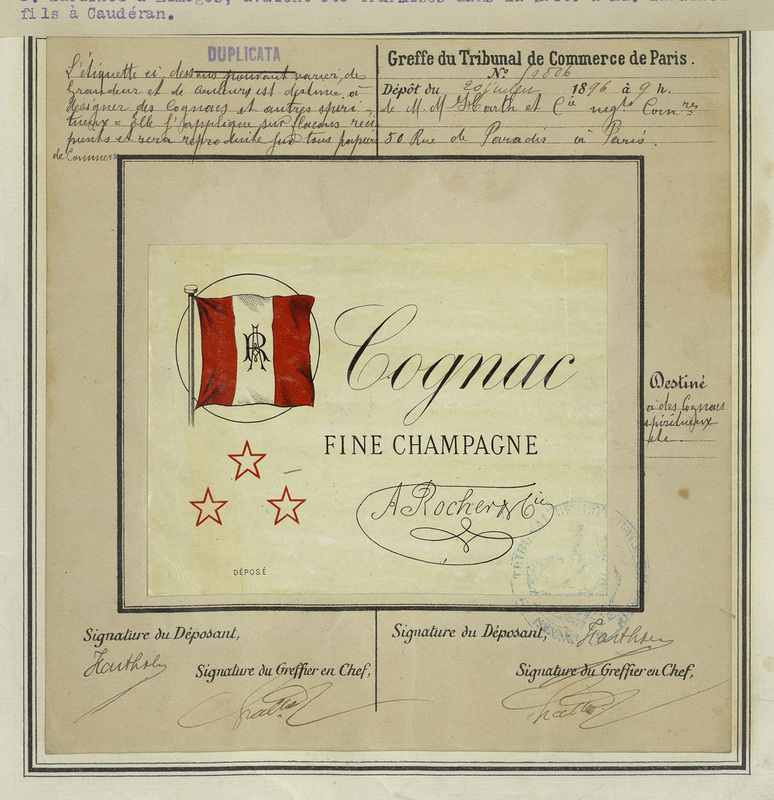 fils à Caudéran.
DUPLICATA
L'étiquette ci dessous pouvant varier, de
Grandeur et de Couleurs est destinée, à
désigner des Cognacs et autres spiri-
tueux = Elle s'applique sur flacons réci
pients et sera reproduite sur tous papiers
de Commerce
Greffe du Tribunal de Commerce de Paris.
No 10806
Dépôt du 20 1896 à 9 h.
de M. M. et Cie negts Comres
50 Rue de Paradis à Paris.
AR
Cognac
FINE CHAMPAGNE
A Rocher & Cie
DÉPOSÉ
Destiné
à des Cognacs
spiritueux
etc.
Signature du Déposant,
Signature du Greffier en Chef,
Signature du Déposant,
Signature du Greffier en Chef,